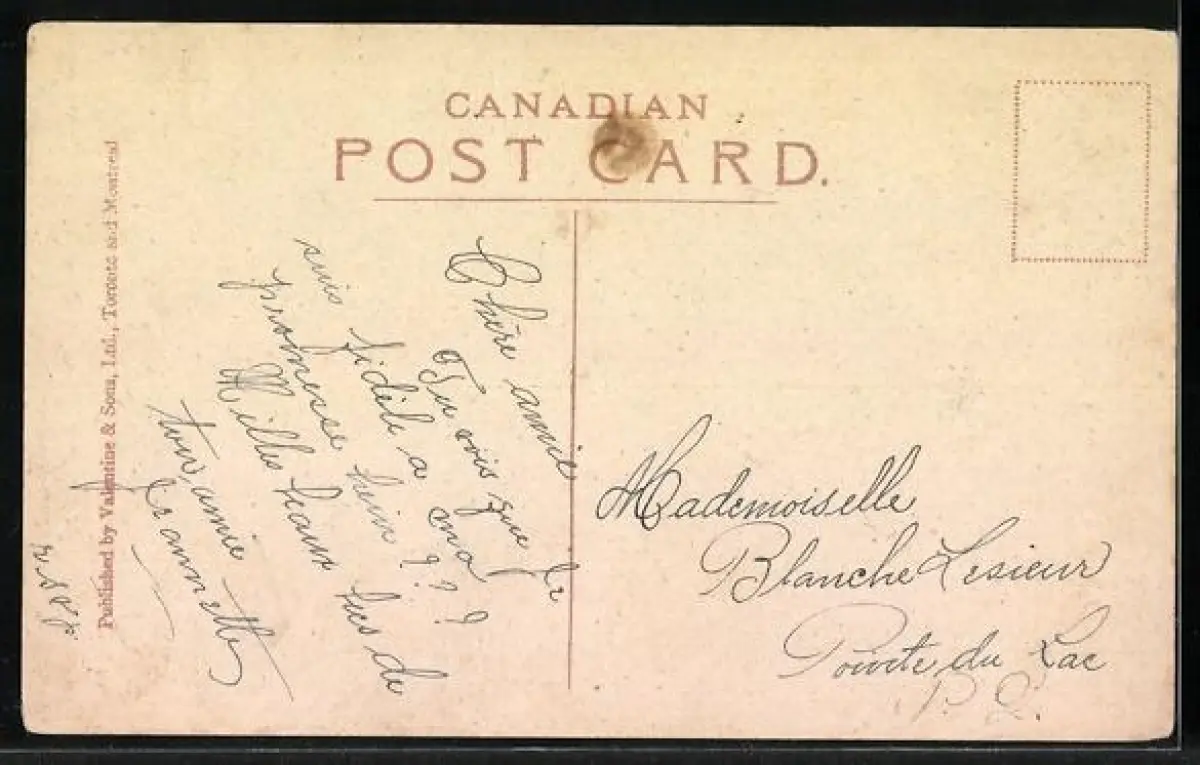 CANADIAN
POST CARD.
Chère amie
Tu vois que je
suis fidèle a ma
promesse hein ? ? ?
Milles beaux bis de
ton amie
Jeannette
Mademoiselle
Blanche Lesieur
Pointe du Lac
P. Q.
Published by Valentine & Sons, Ltd., Toronto and Montreal